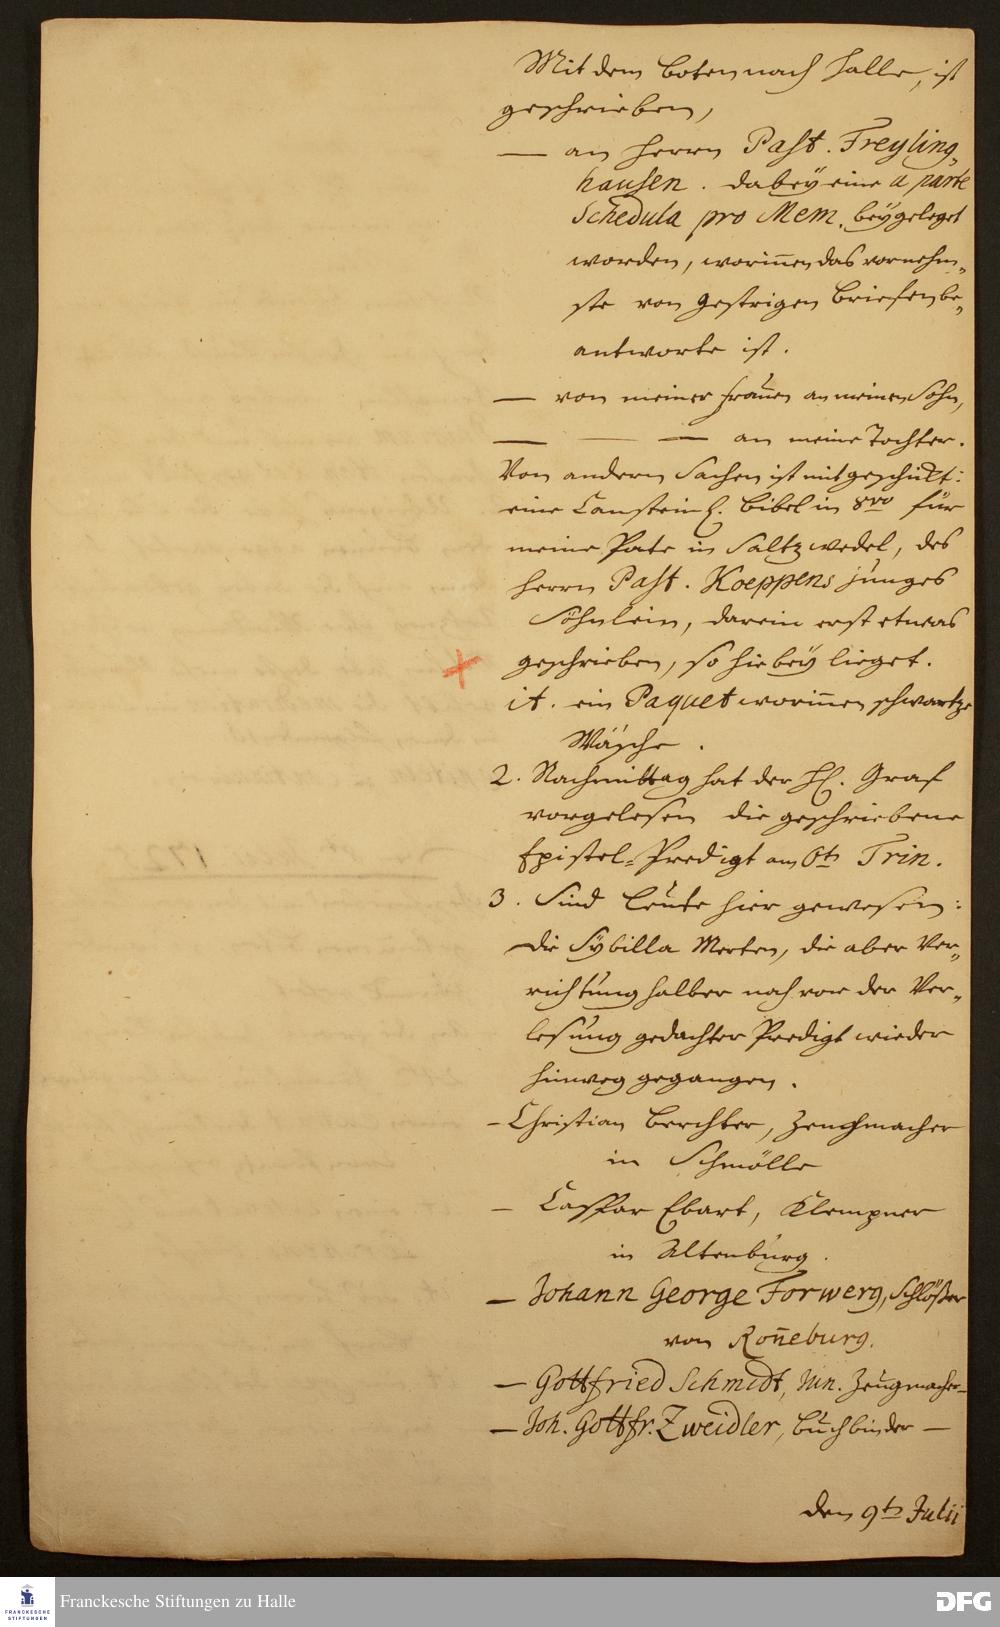 Mit dem boten nach Halle, ist
geschrieben,
— an Herrn Past. Freyling„
hausen. dabeÿ eine a parte
Schedula pro Mem. beÿgeleget
worden, worin̄en das vornehm„
ste von gestrigen briefen be„
antworte ist.
— von meiner Frauen an meinen Sohn,
— — — an meine Tochter.
Von andern Sachen ist mitgeschickt:
eine Cansteinl. Bibel in 8vo für
meine Pate in Saltzwedel, des
Herrn Past. Koeppens junges
Söhnlein, darein erst etwas
geschrieben, so hiebeÿ lieget.
it. ein Paquet worin̄en schwartze
Wäsche.
2. Nachmittag hat der H. Graf
vorgelesen die geschriebene
Epistel-Predigt am 6tn Trin.
3. Sind Leute hier gewesen:
die Sÿbilla Merten, die aber Ver„
richtung halber noch vor der Ver„
lesung gedachter Predigt wieder
hinweg gegangen.
— Christian Berchter, Zeugmacher
in Schmölle
— Caspar Ebart, Klempner
in Altenburg.
— Johann George Forwerg, Schlößer
von Ron̄eburg.
— Gottfried Schmidt, Jun. Zeugmacher —
— Joh. Gottfr. Zweidler, buchbinder —
den 9tn Julii
Franckesche Stiftungen zu Halle
FRANCKESCHE
STIFTUNGEN
DFG